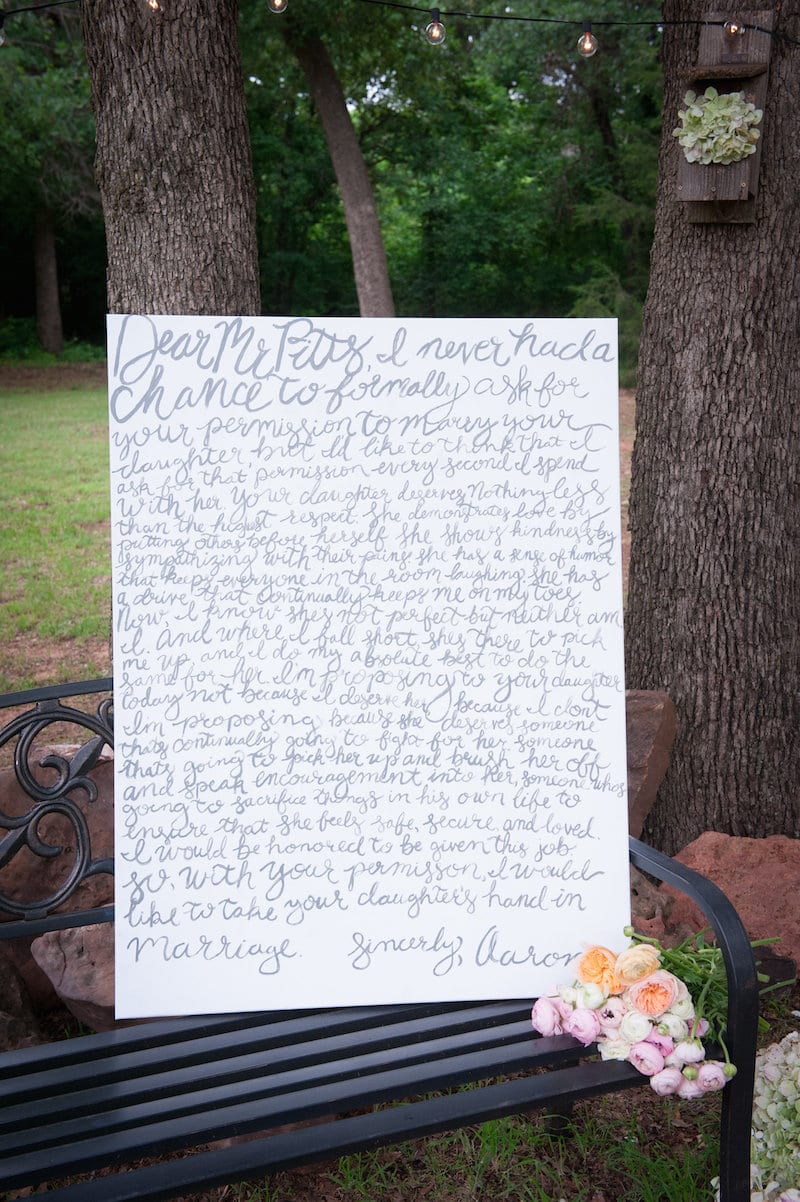 Dear Mr Pitts, I never had a
chance to formally ask for
your permission to marry your
daughter, but I'd like to think that I
ask for that permission every second I spend
with her. Your daughter deserves Nothing less
than the highest respect. She demonstrates love by
putting others before herself. She shows kindness by
sympathizing with their pains. She has a sense of humor
that keeps everyone in the room laughing. She has
a drive that continually keeps me on my toes.
Now, I know she's not perfect but neither am
I. And where I fall short, she's there to pick
me up, and I do my absolute best to do the
same for her. I'm proposing to your daughter
today not because I deserve her, because I don't
I'm proposing because she deserves someone
thats continually going to fight for her, someone
thats going to pick her up and brush her off
and speak encouragement into her, someone whos
going to sacrifice things in his own life to
ensure that she feels safe, secure, and loved.
I would be honored to be given this job
so, with your permisson, I would
like to take your daughter's hand in
Marriage. Sincerly, Aaron